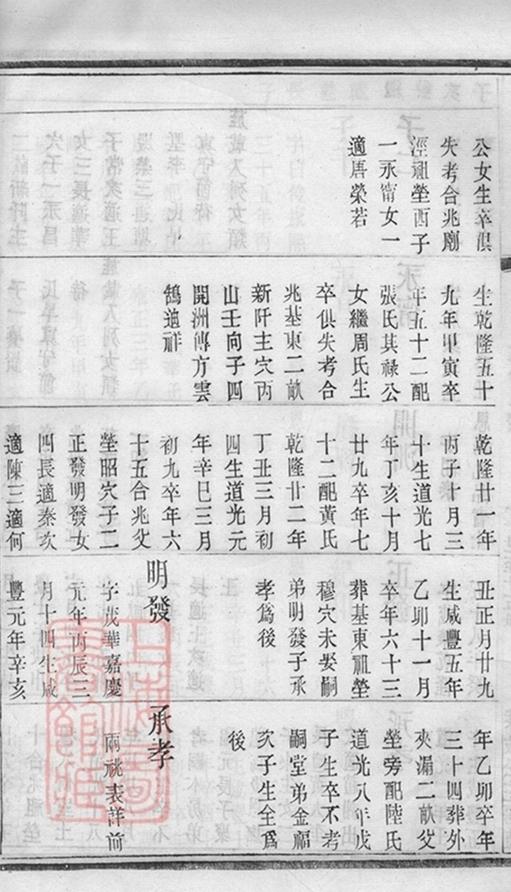 公女生卒俱
失考合兆廟
涇祖塋酉子
一永甯女一
適唐榮若
生乾隆五十
九年甲寅卒
年五十二配
張氏其祿公
女繼周氏生
卒俱失考合
兆基東二畝
新阡主穴丙
山壬向子四
開洲傳方雲
鵠適祥
乾隆廿一年
丙子十月三
十生道光七
年丁亥十月
廿九卒年七
十二配黃氏
乾隆廿二年
丁丑三月初
四生道光元
年辛巳三月
初九卒年六
十五合兆父
塋昭穴子二
正發明發女
四長適秦次
適陳三適何
丑正月廿九
生咸豐五年
乙卯十一月
卒年六十三
葬基東祖塋
穆穴未娶嗣
弟明發子承
孝爲後
明發
字茂華嘉慶
元年丙辰三
月十四生咸
豐元年辛亥
年乙卯卒年
三十四葬外
夾漏二畝父
塋旁配陸氏
道光八年戊
子生卒不考
嗣堂弟金福
次子生全爲
後
承孝
兩祧表詳前